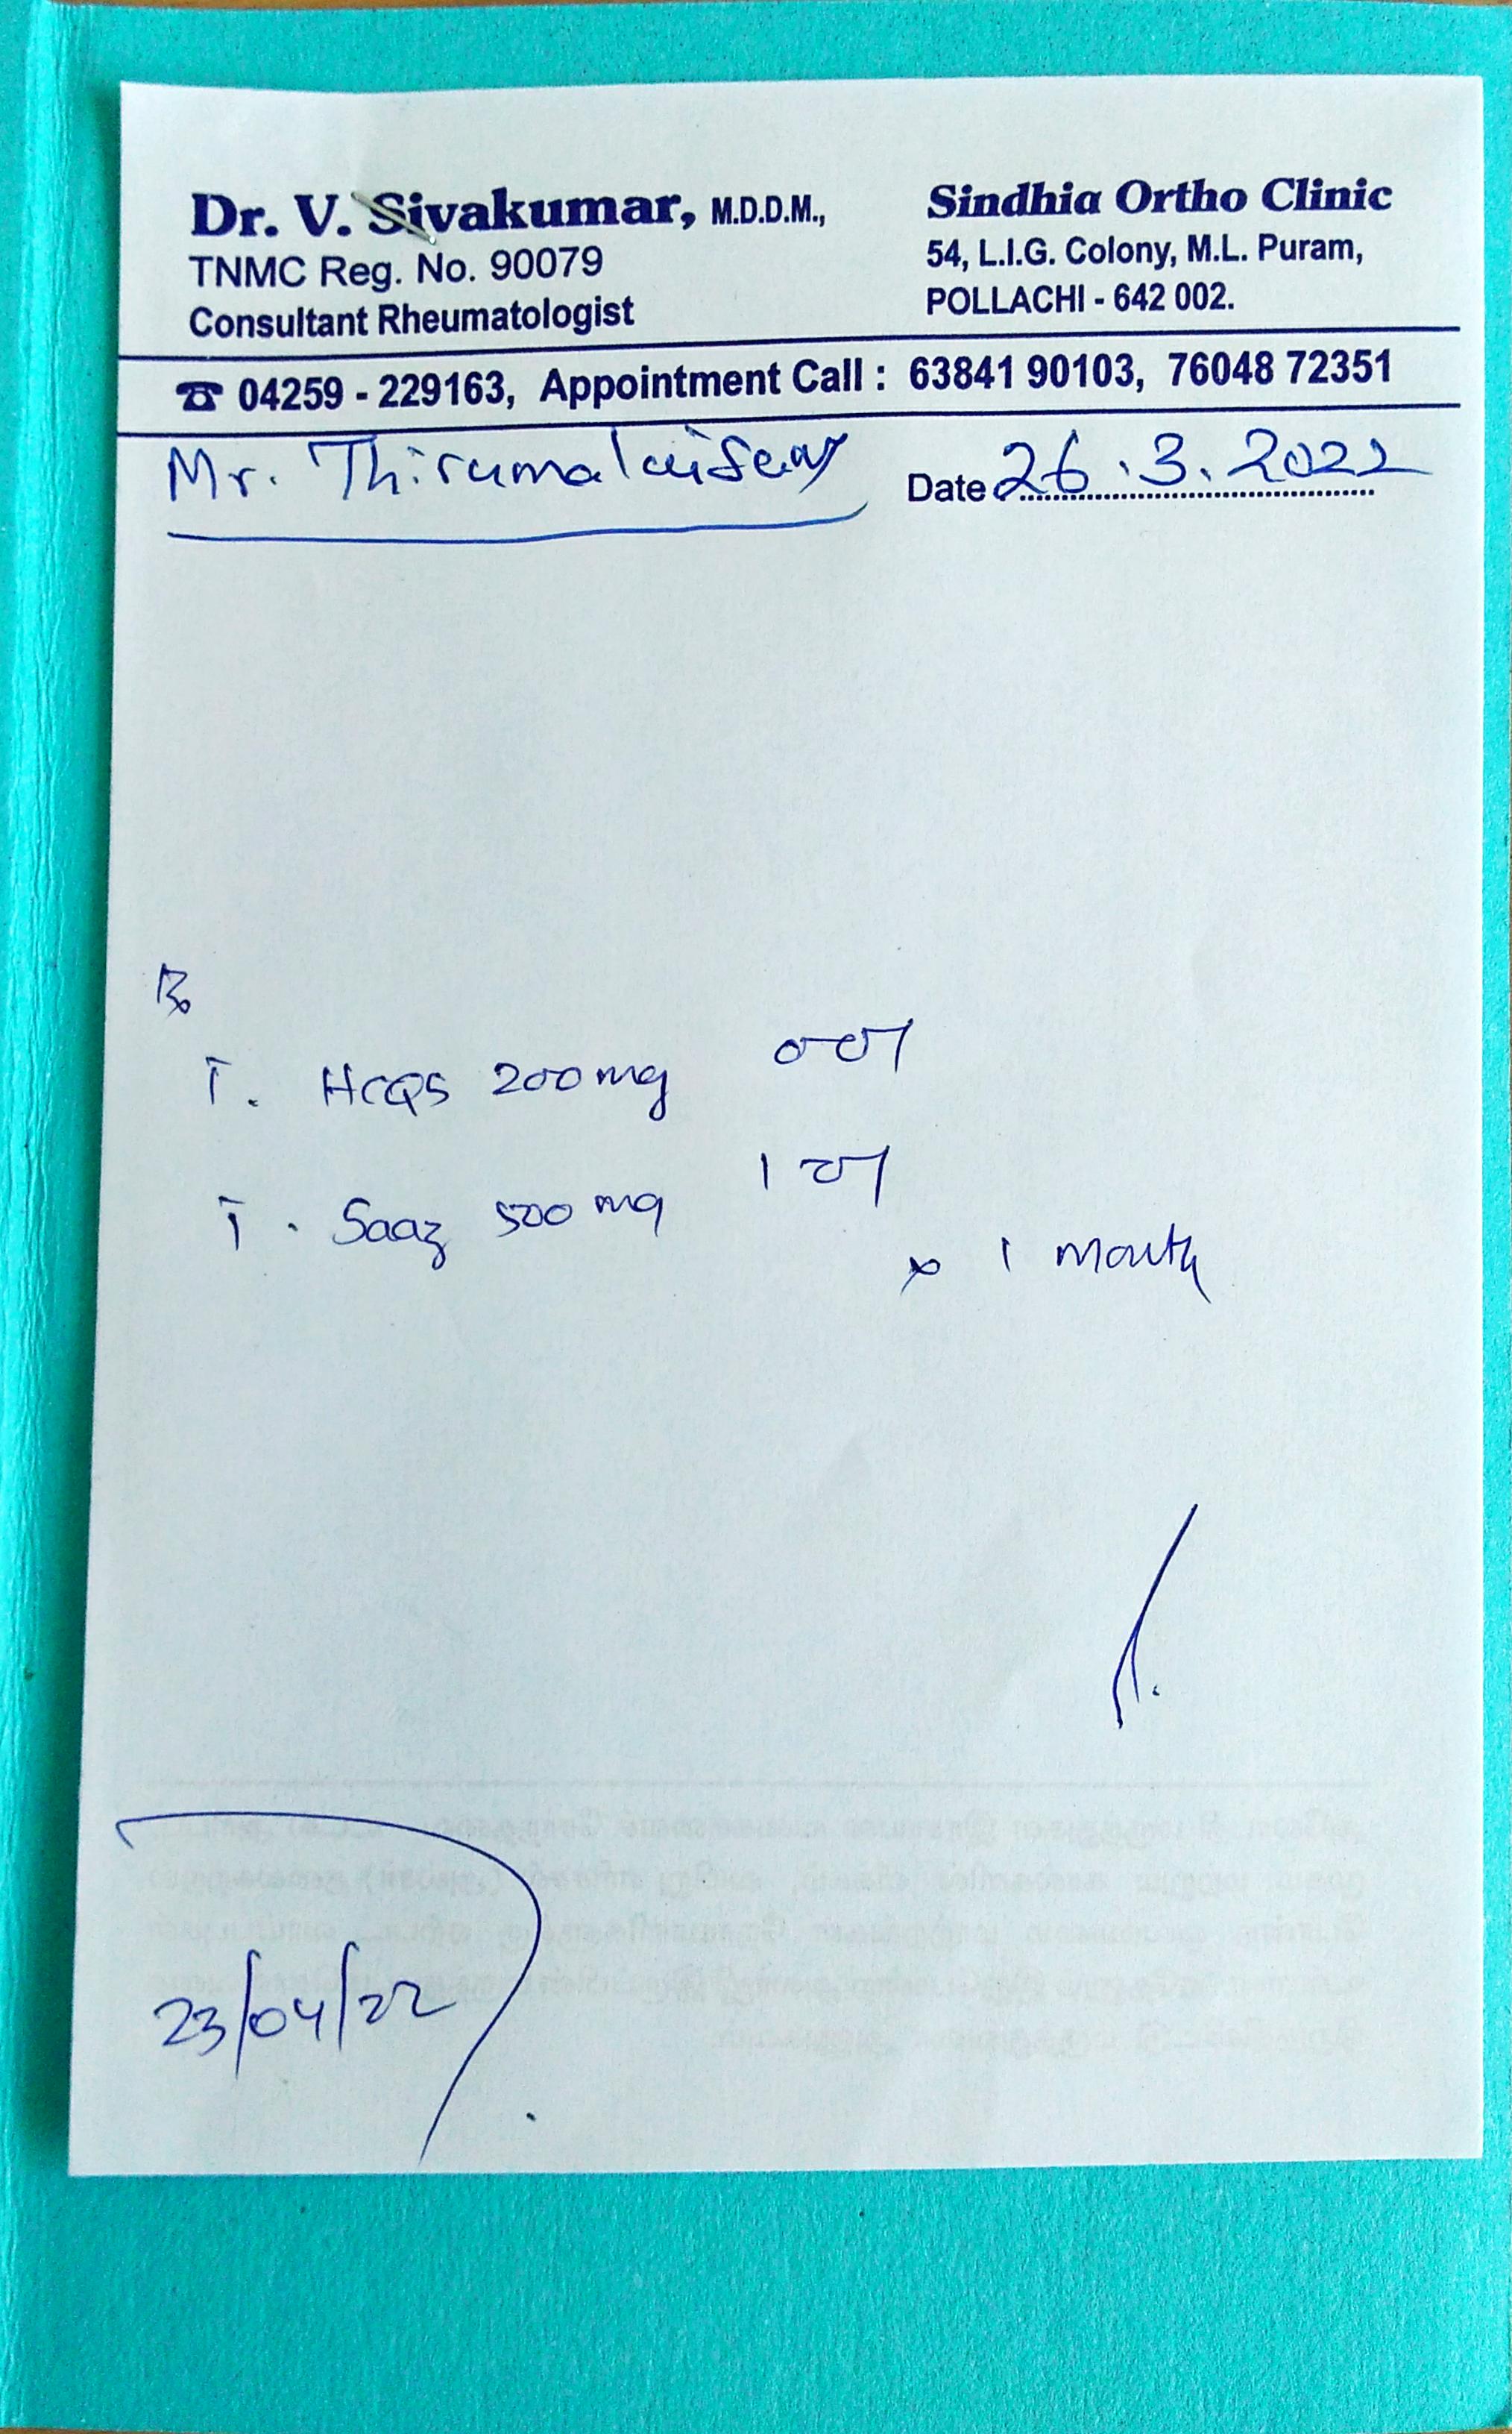 Dr. V. Sivakumar, M.D.D.M.,
TNMC Reg. No. 90079
Consultant Rheumatologist
Sindhia Ortho Clinic
54, L.I.G. Colony, M.L. Puram,
POLLACHI - 642 002.
☎ 04259 - 229163, Appointment Call : 63841 90103, 76048 72351
Mr. Thirumalaisamy Date 26.3.2022
Rx
T. HCQS 200mg 0-0-1
T. Saaz 500mg 1-0-1
x 1 month
23/04/22